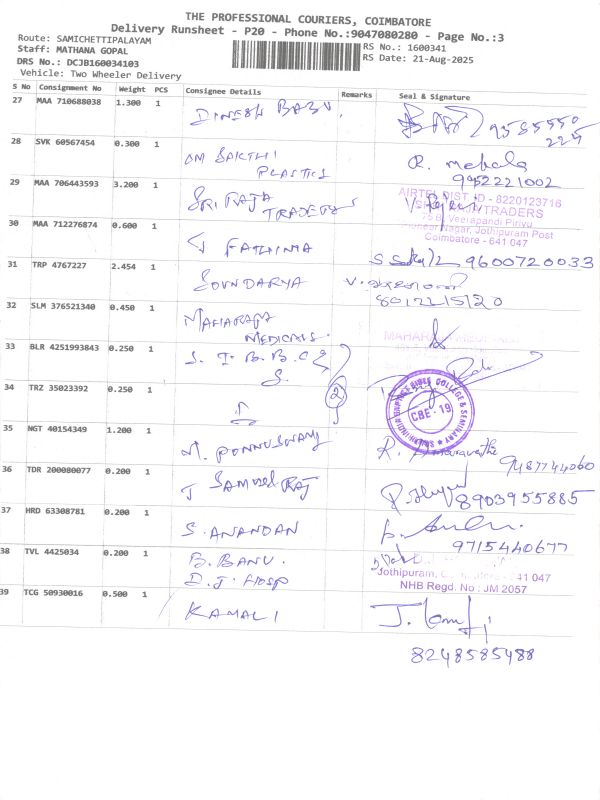 THE PROFESSIONAL COURIERS, COIMBATORE
Delivery Runsheet - P20 - Phone No.:9047080280 - Page No.:3
Route: SAMICHETTIPALAYAM
Staff: MATHANA GOPAL
RS No.: 1600341
DRS No.: DCJB160034103
RS Date: 21-Aug-2025
Vehicle: Two Wheeler Delivery
S No Consignment No Weight PCS Consignee Details Remarks Seal & Signature
27 MAA 710688038 1.300 1 DINESH BABU.
28 SVK 60567454 0.300 1 OM SAKTHI
PLASTICS R. Mekala
9952221002
29 MAA 706443593 3.200 1 SRI RAJA
TRADERS
AIRTEL DIST. ID - 8220123716
TRADERS
Veerapandi Pirivu
Nagar, Jothipuram Post
Coimbatore - 641 047
30 MAA 712276874 0.600 1 FATHIMA 9600720033
31 TRP 4767227 2.454 1 SOUNDARYA
8012215120
32 SLM 376521340 0.450 1 MAHARAJA
MEDICALS.
33 BLR 4251993843 0.250 1 S. I. B. B. C &
S.
34 TRZ 35023392 0.250 1 2
SOUTH INDIA BAPTIST BIBLE COLLEGE & SEMINARY
CBE - 19
35 NGT 40154349 1.200 1 M. PONNUSWAMY
36 TDR 200080077 0.200 1 J SAMUEL RAJ
8903955885
37 HRD 63308781 0.200 1 S. ANANDAN
9715440677
38 TVL 4425034 0.200 1 B. BANU.
D. J. HOSP
Jothipuram, 641 047
NHB Regd. No : JM 2057
39 TCG 50930016 0.500 1 KAMALI
8248585488